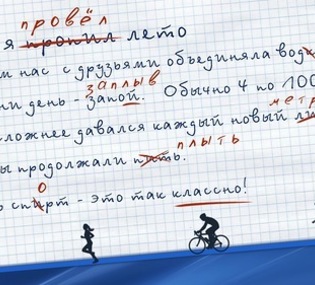 провёл
я пропил лето
м нас с друзьями объединяла вод
заплыв
ни день - запой. Обычно 4 по 100
метр
сложнее давался каждый новый ли
плыть
ы продолжали пить.
о
о спирт - это так классно!